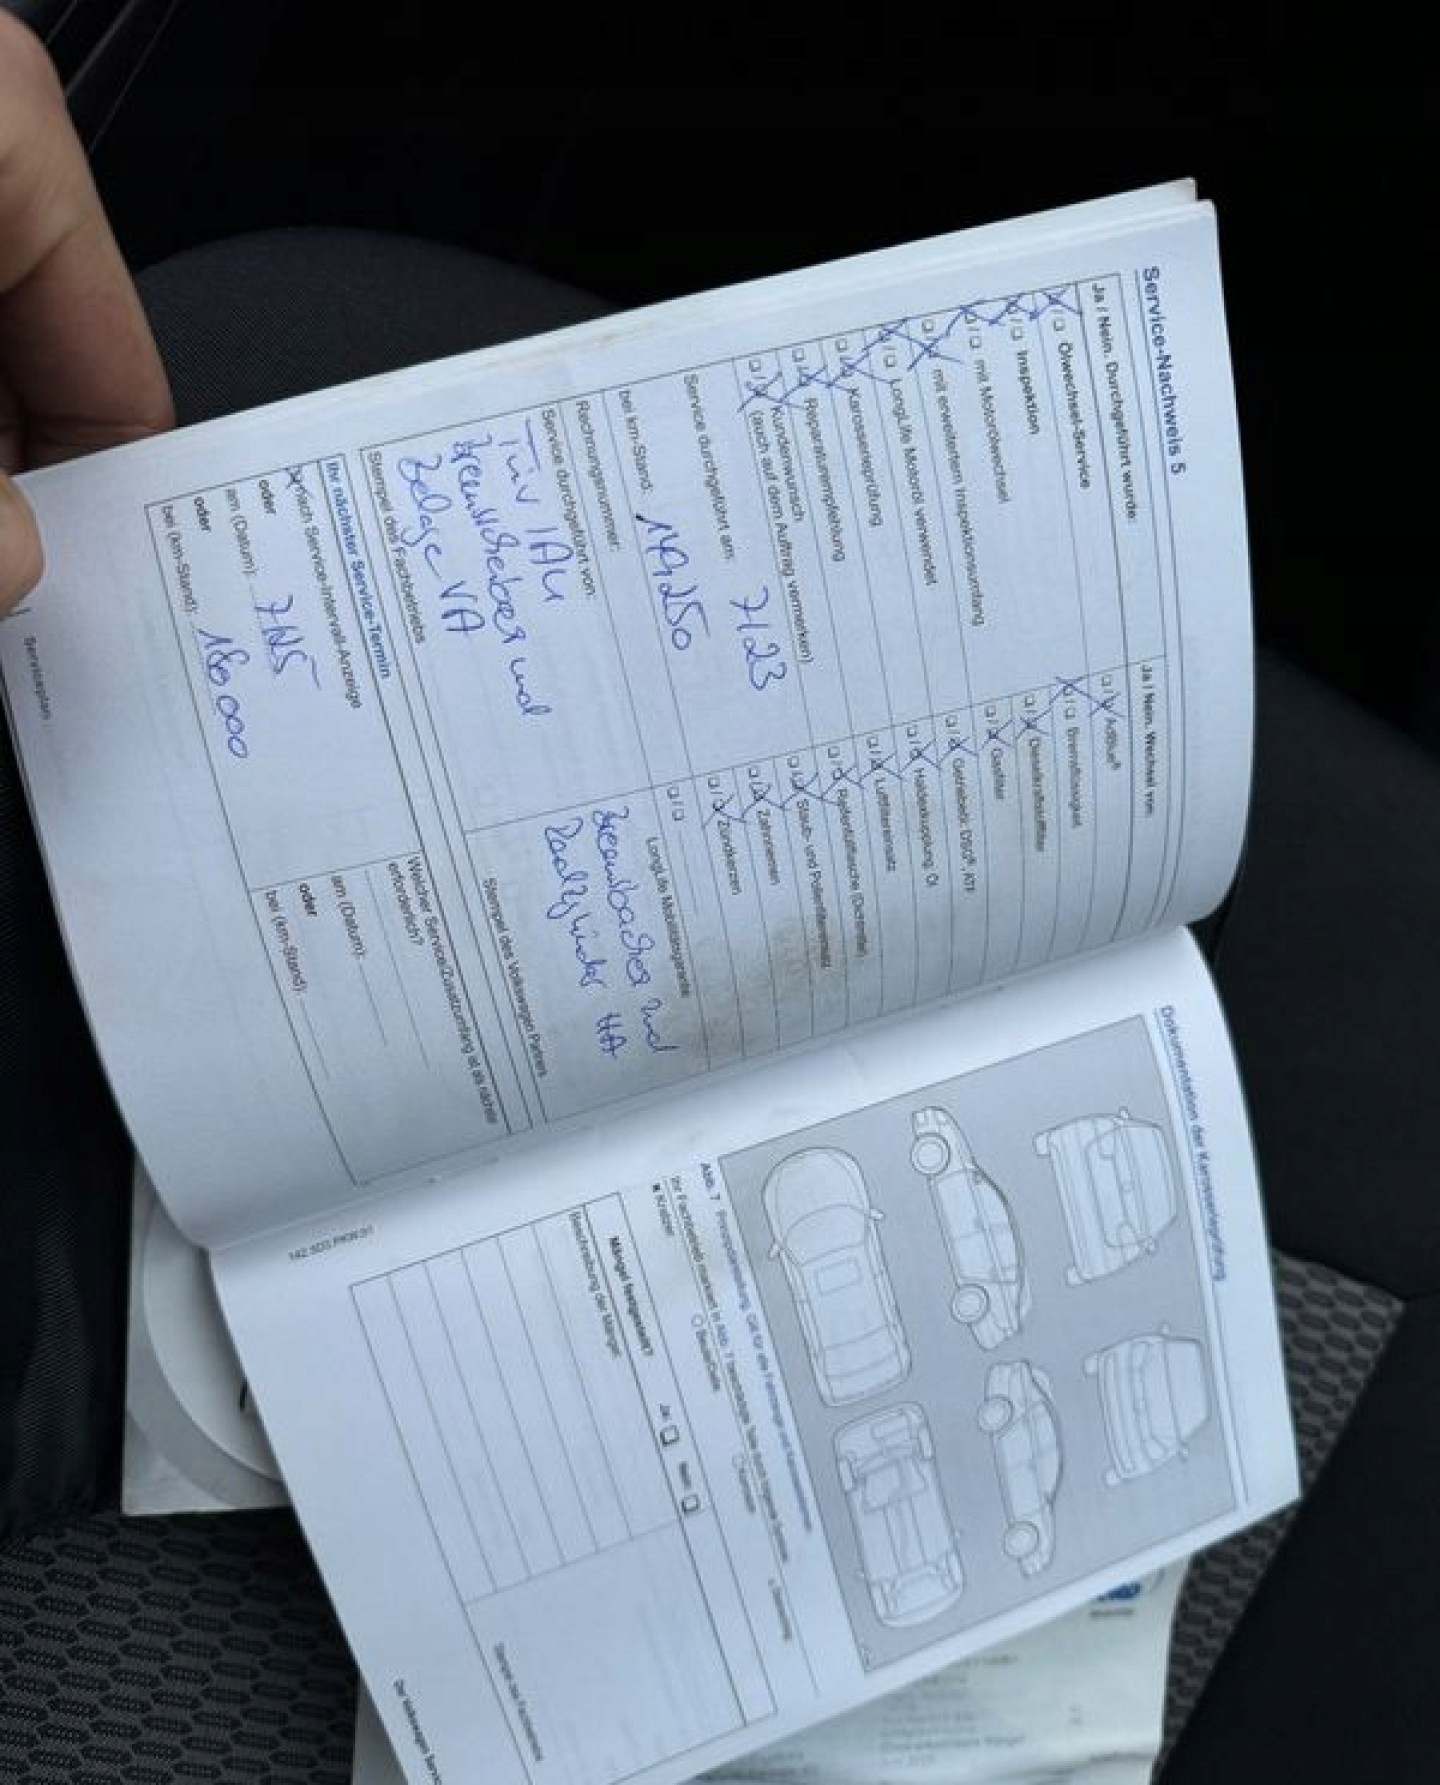 Service-Nachweis 5
Ja / Nein. Durchgeführt wurde:
Ölwechsel-Service
Inspektion
mit Motorölwechsel
mit erweitertem Inspektionsumfang
LongLife Motoröl verwendet
Karosserieprüfung
Reparaturempfehlung
Kundenwunsch
(auch auf dem Auftrag vermerken)
Service durchgeführt am: 7/23
bei km-Stand: 149250
Rechnungsnummer:
Service durchgeführt von:
TÜV / AU
Bremsscheiben und
Beläge VA
Stempel des Fachbetriebs
Ja / Nein. Wechsel von:
AdBlue®
Bremsflüssigkeit
Dieselkraftstofffilter
Gasfilter
Getriebeöl: DSG®, ATF
Haldexkupplung Öl
Luftfiltereinsatz
Reifenfüllflasche (Dichtmittel)
Staub- und Pollenfiltereinsatz
Zahnriemen
Zündkerzen
LongLife Mobilitätsgarantie
Bremsbacken und
Radzylinder HA
Stempel des Volkswagen Partners
Ihr nächster Service-Termin
Nach Service-Intervall-Anzeige
oder
am (Datum): 7/25
oder
bei (km-Stand): 180000
Welcher Service/Zusatzumfang ist als nächster
erforderlich?
am (Datum):
oder
bei (km-Stand):
Serviceplan
Dokumentation der Karosserieprüfung
Abb. 7 Prinzipdarstellung: Gilt für alle Fahrzeuge und Karosserievarianten
Ihr Fachbetrieb markiert in Abb. 7 beschädigte Teile durch folgende Symbole:
Kratzer
Beule/Delle
Mängel festgestellt?
Ja:
Nein:
Beschreibung der Mängel:
Stempel des Fachbetriebs